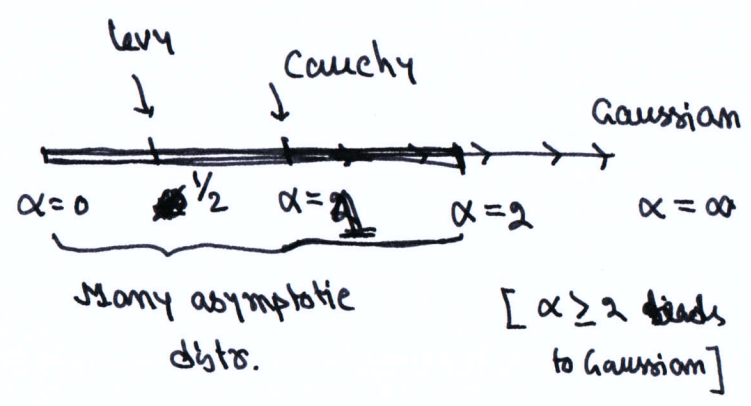 Levy
Cauchy
Gaussian
α=0
1/2
α=1
α=2
α=∞
Many asymptotic
distr.
[ α≥2 leads
to Gaussian]